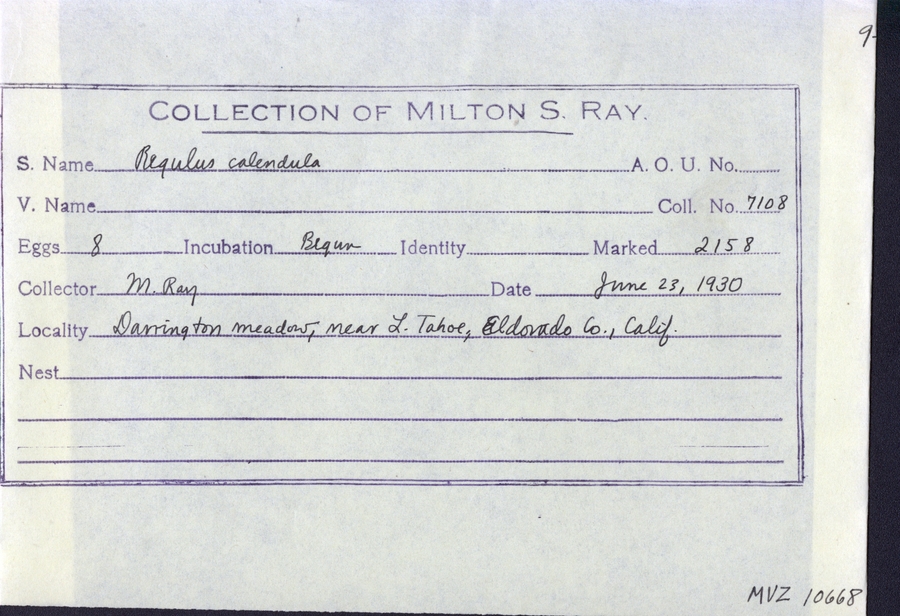 9-
COLLECTION OF MILTON S. RAY.
S. Name Regulus calendula A. O. U. No.
V. Name Coll. No. 7108
Eggs 8 Incubation Begun Identity Marked 2158
Collector M. Ray Date June 23, 1930
Locality Darrington meadow, near L. Tahoe, Eldorado Co., Calif.
Nest
MVZ 10668